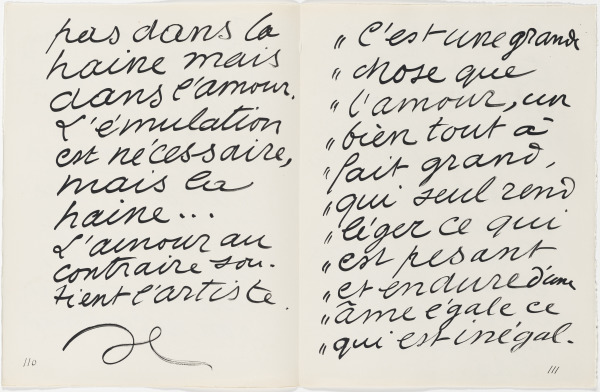 pas dans la
haine mais
dans l'amour.
L'émulation
est nécessaire,
mais la
haine...
L'amour au
contraire sou-
tient l'artiste.
110
" C'est une grande
" chose que
" l'amour, un
" bien tout à
" fait grand,
" qui seul rend
" léger ce qui
" est pesant
" et endure d'une
" âme égale ce
" qui est inégal.
111